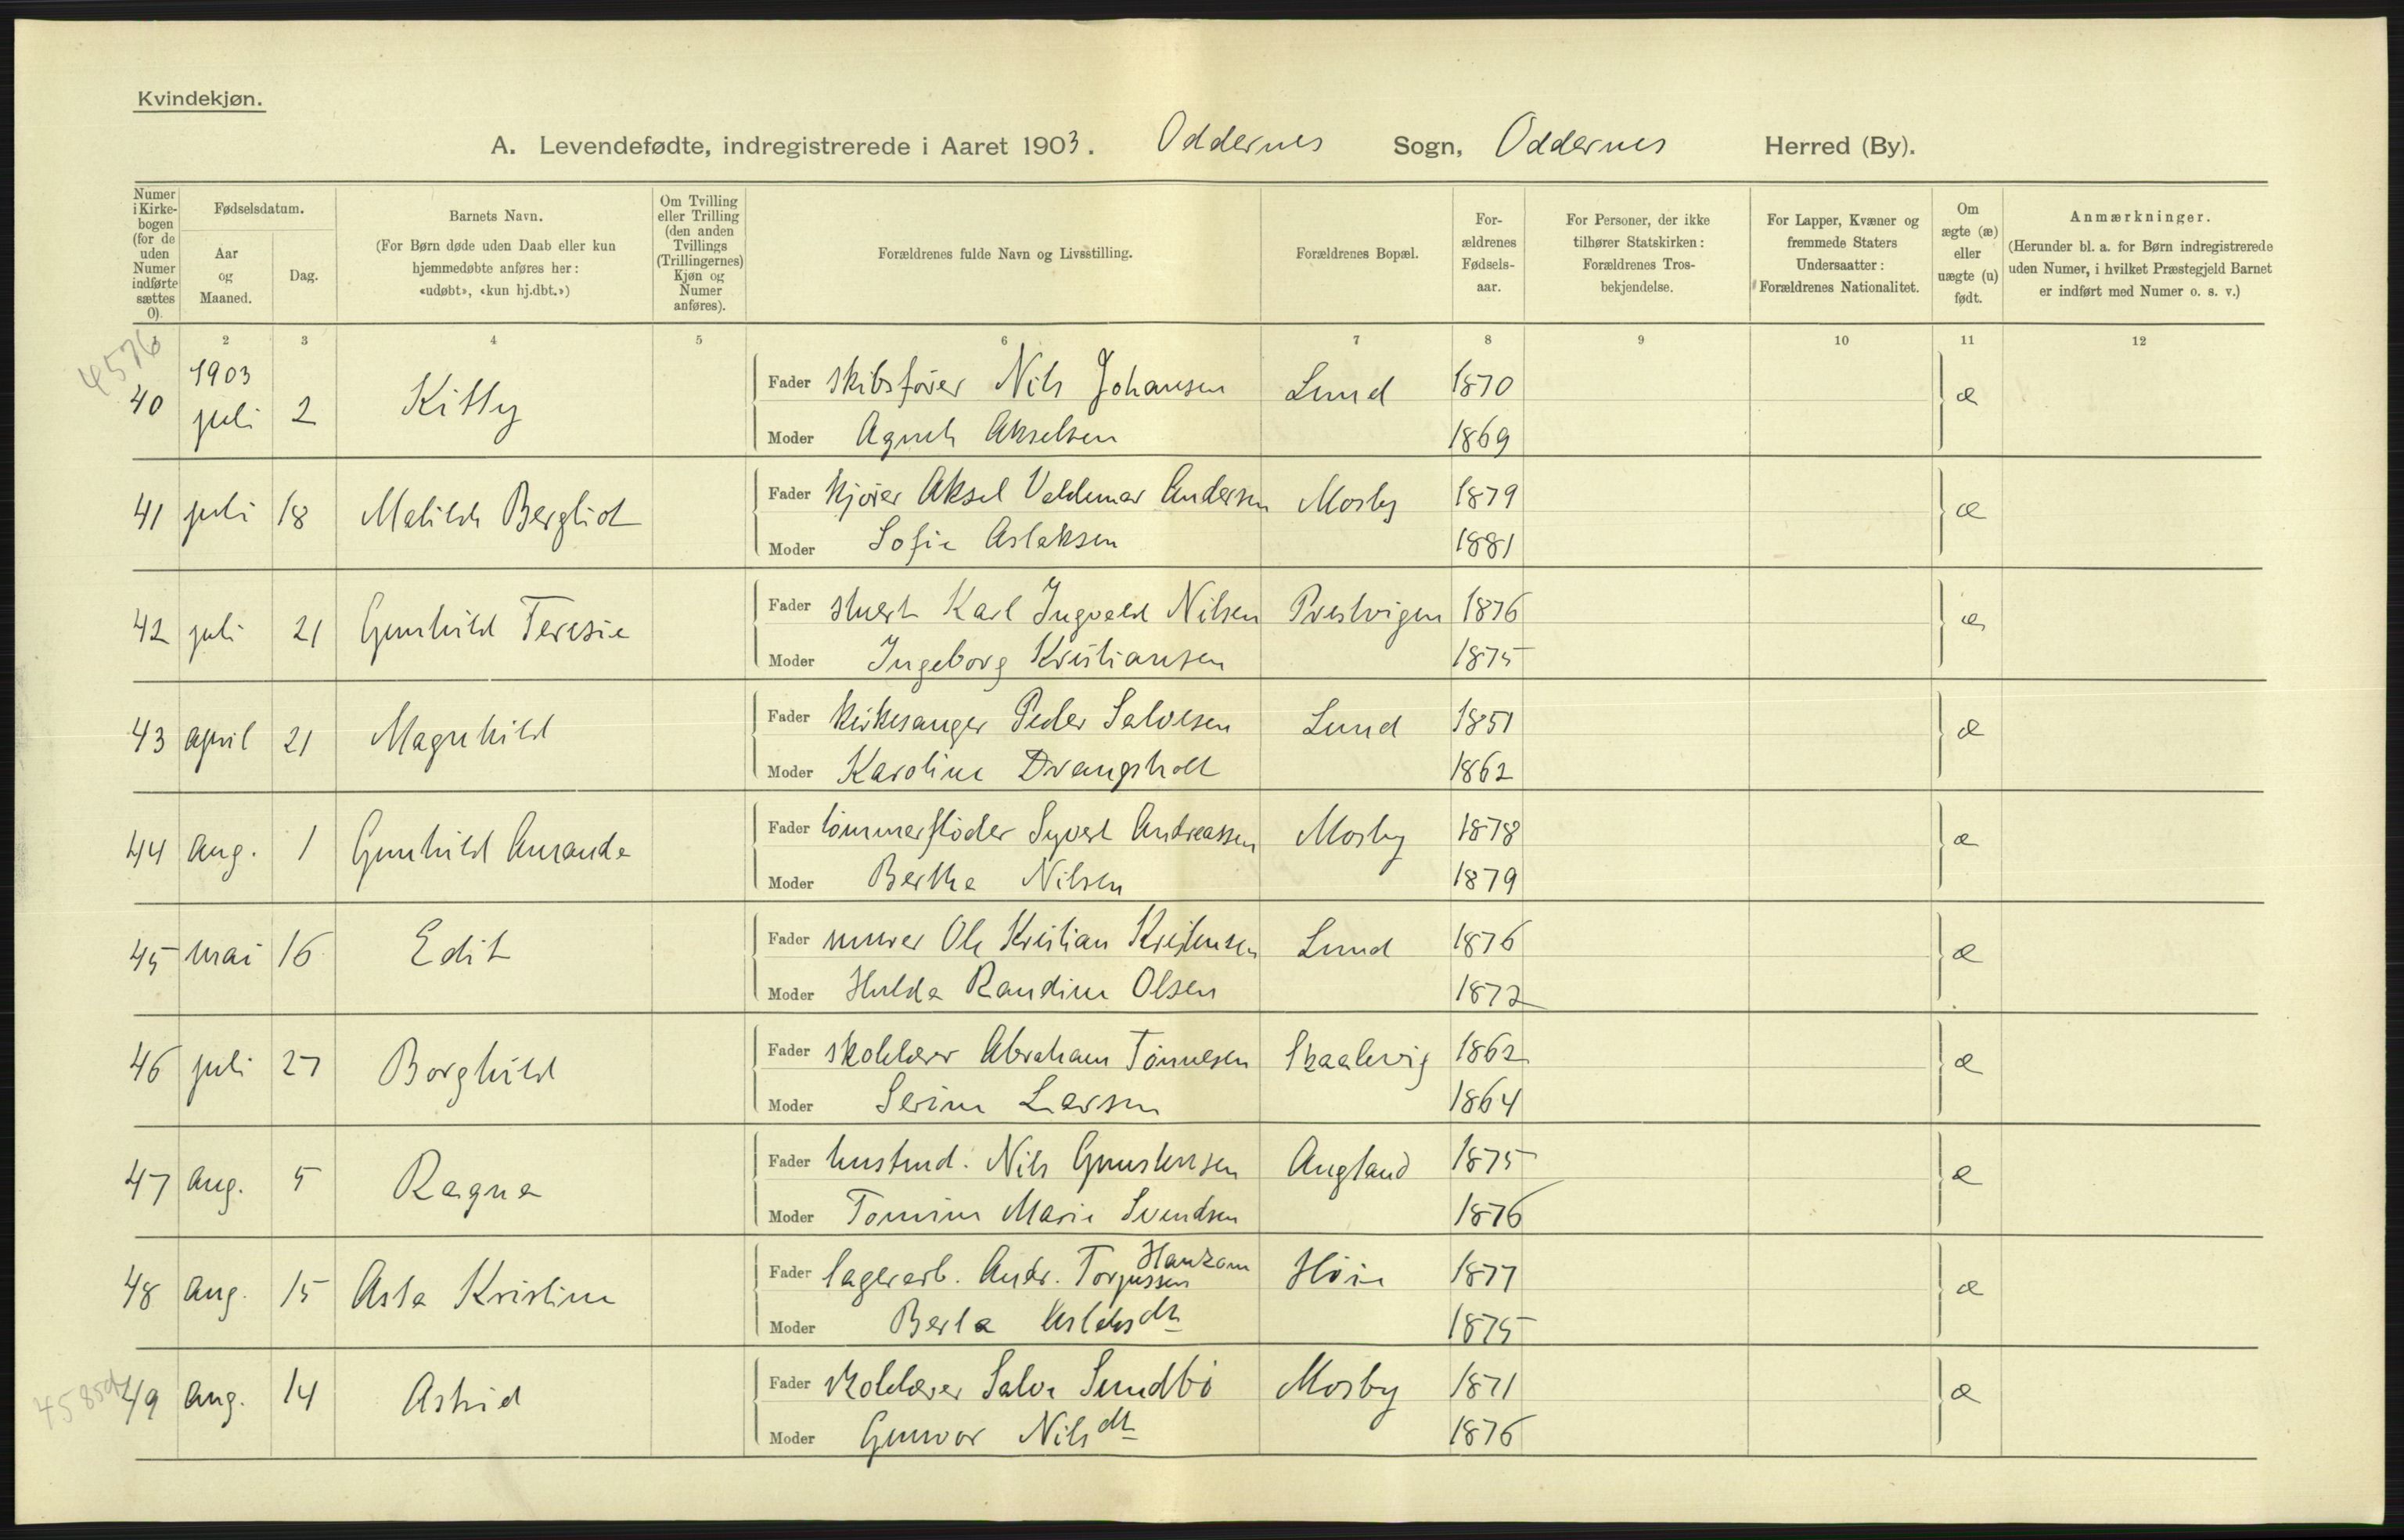 Kvindekjøn.
A. Levendefødte, indregistrerede i Aaret 1903. Oddernes Sogn, Oddernes Herred (By).
Numer i Kirkebogen (for de uden Numer indførte sættes 0).
Fødselsdatum.
Aar og Maaned.
Dag.
Barnets Navn.
(For Børn døde uden Daab eller kun hjemmedøbte anføres her: «udøbt», «kun hj.dbt.»)
Om Tvilling eller Trilling (den anden Tvillings (Trillingernes) Kjøn og Numer anføres).
Forældrenes fulde Navn og Livsstilling.
Forældrenes Bopæl.
Forældrenes Fødselsaar.
For Personer, der ikke tilhører Statskirken: Forældrenes Trosbekjendelse.
For Lapper, Kvæner og fremmede Staters Undersaatter: Forældrenes Nationalitet.
Om ægte (æ) eller uægte (u) født.
Anmærkninger.
(Herunder bl. a. for Børn indregistrerede uden Numer, i hvilket Præstegjeld Barnet er indført med Numer o. s. v.)
2 3 4 5 6 7 8 9 10 11 12
4576
1903
40 juli 2 Kitty Fader skibsfører Nils Johansen Lund 1870 æ
Moder Agnete Akselsen 1869
41 juli 18 Matilde Bergliot Fader kjører Aksel Valdemar Andersen Mosby 1879 æ
Moder Sofie Aslaksen 1881
42 juli 21 Gunhild Teresie Fader stuert Karl Ingvald Nilsen Prestvigen 1876 æ
Moder Ingeborg Kristiansen 1875
43 april 21 Magnhild Fader kirkesanger Peder Salvesen Lund 1851 æ
Moder Karoline Drangsholt 1862
44 aug. 1 Gunhild Amanda Fader tømmerfløder Syvert Andreassen Mosby 1878 æ
Moder Bertha Nilsen 1879
45 mai 16 Edit Fader murer Ole Kristian Kristensen Lund 1876 æ
Moder Hulda Randine Olsen 1872
46 juli 27 Borghild Fader skolelærer Abraham Tønnesen Skaalevig 1862 æ
Moder Serine Larsen 1864
47 aug. 5 Ragna Fader hustmd. Nils Gunstensen Augland 1875 æ
Moder Tomine Marie Svendsen 1876
48 aug. 15 Asta Kristine Fader lagerarb. Andr. Torjussen Hankom Høie 1877 æ
Moder Berta Aslaksdtr 1875
4585
49 aug. 14 Astrid Fader skolelærer Salve Sundbø Mosby 1871 æ
Moder Gunvor Nilsdtr 1876